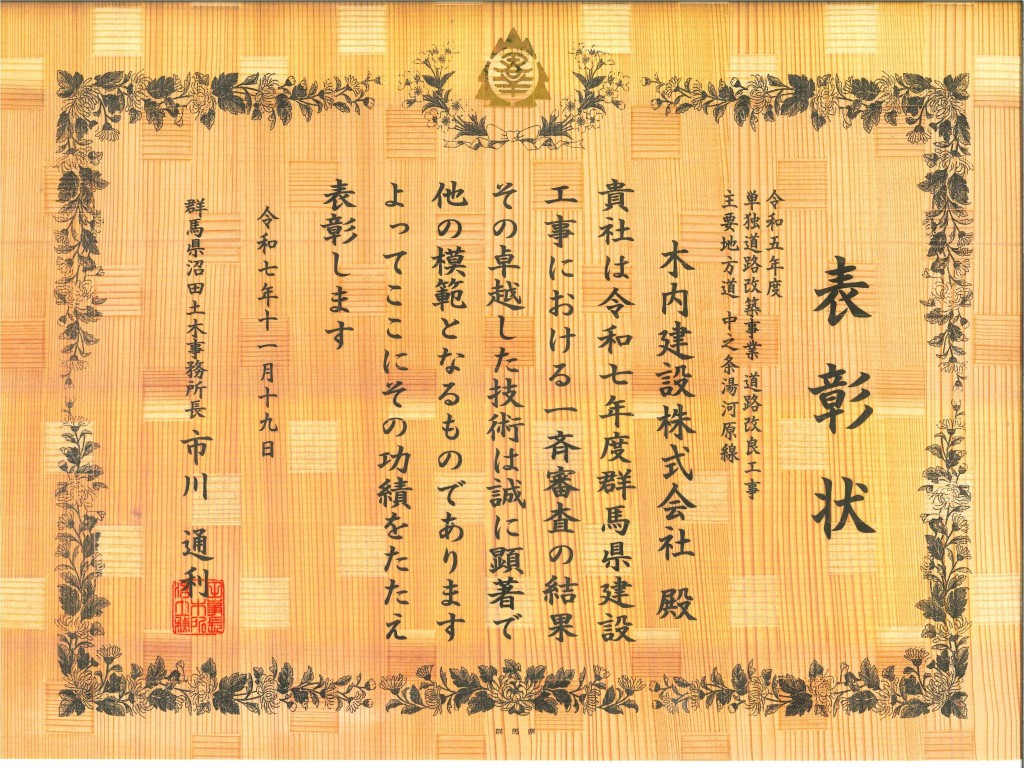 表彰状
令和五年度
単独道路改築事業 道路改良工事
主要地方道 中之条湯河原線
木内建設株式会社 殿
貴社は令和七年度群馬県建設
工事における一斉審査の結果
その卓越した技術は誠に顕著で
他の模範となるものであります
よってここにその功績をたたえ
表彰します
令和七年十一月十九日
群馬県沼田土木事務所長 市川 通利
群馬県